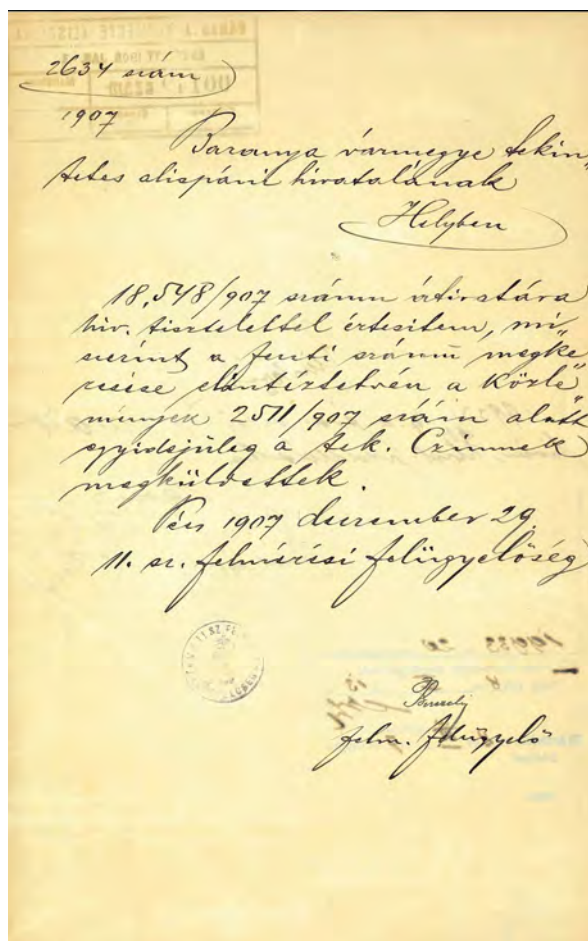 2634 szám
1907
Baranya vármegye tekin„
tetes alispáni hivatalának
Helyben
18,548/907 számu átiratára
hiv. tisztelettel értesitem, mi„
szerint a fenti számu megke„
resése elintéztetvén a közle„
mények 2511/907 szám alatt
egyidejüleg a tek. Czimnek
megküldettek.
Pécs 1907 deczember 29.
11. sz. felmérési felügyelőség
felm. felügyelő